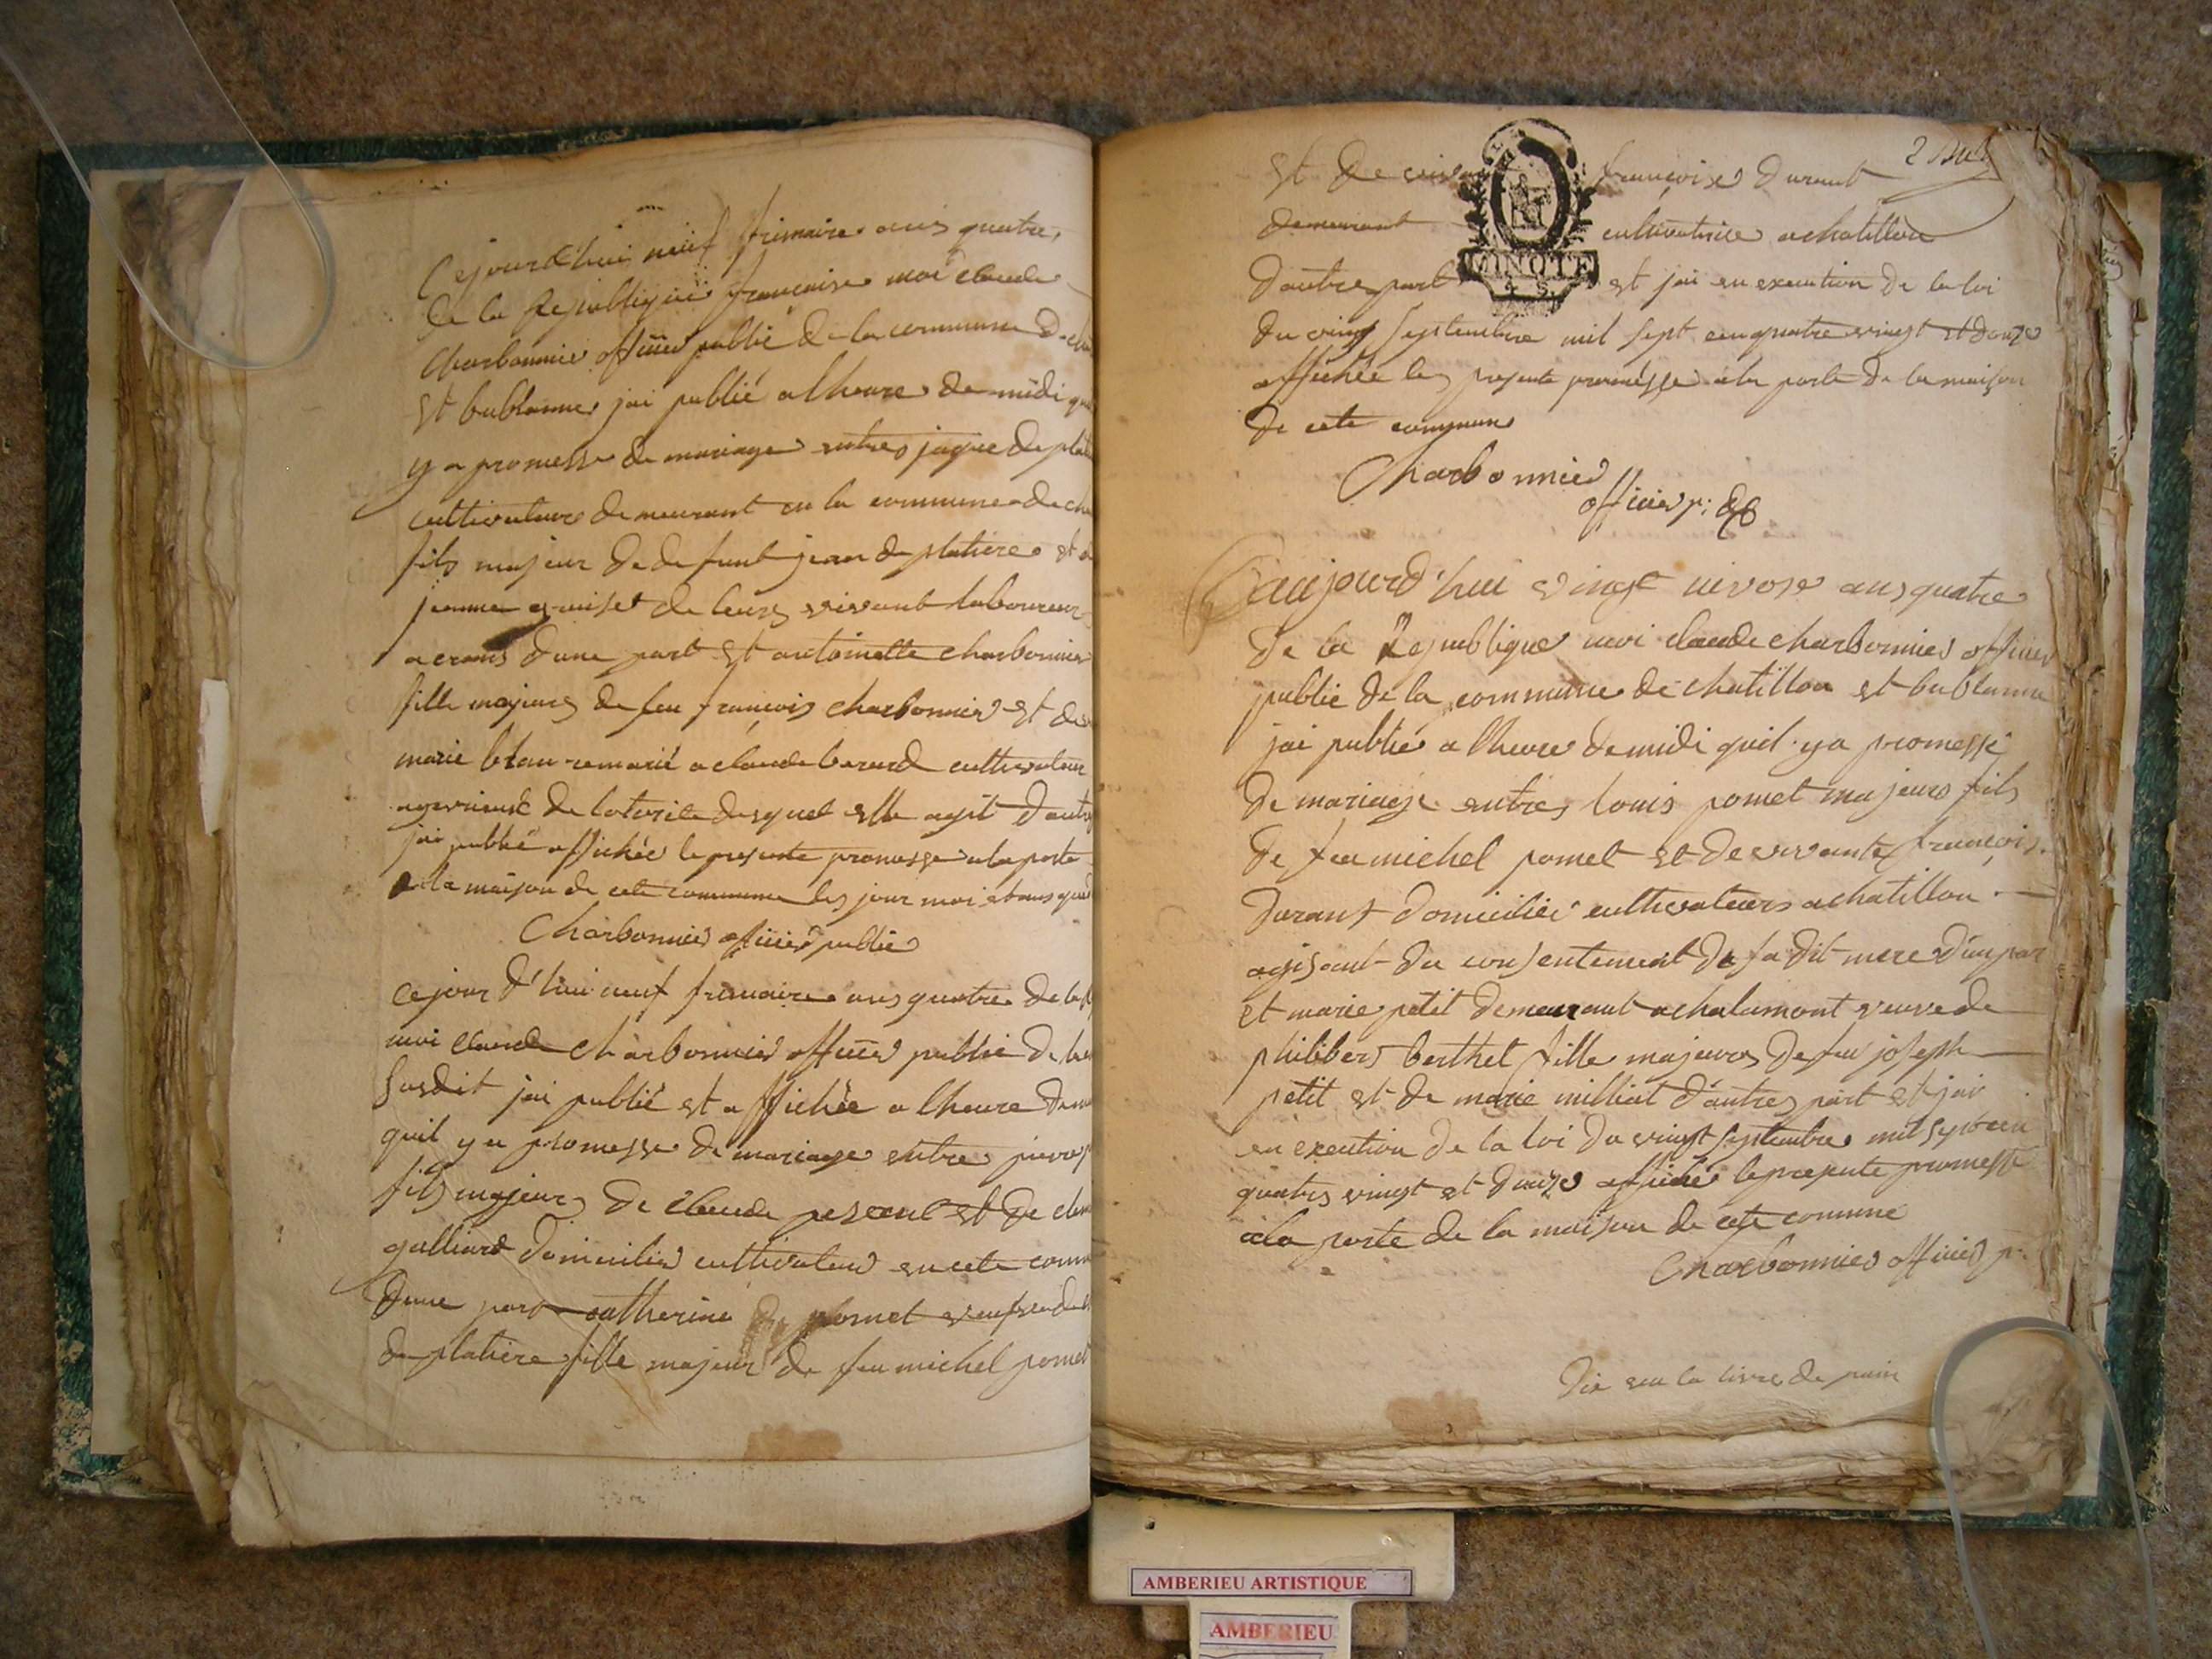 Cejourd'hui neuf frimaire ans quatre
de la Republique françoise moi claude
Charbonnier officier public de la commune de
et bublanne jai publié a lheure de midi
y a promesse de mariage entre jaque de
cultivateur demeurant en la commune de
fils majeur de defunt jean de platiere et
jeanne de leurs vivant laboureur
a crans dune part et antoinette charbonnier
fille majeure de feu françois charbonnier et de
marie blan remarié a claude berard cultivateur
de lotorité duquel elle agit
jai publié affichée le presente promesse a la porte
de la maison de cete commune les jour moi et ans
Charbonnier officier public
cejour d'hui neuf frimaire ans quatre de la
moi claude charbonnier officier public de la
susdit jai publié et affichée a lheure de
quil y a promesse de mariage entre
fils majeur de claude et de
galliard domicilié cultivateur en cete
dune part catherine pomet
de platiere fille majeur de feu michel pomet
2
et de françoise durant
demeurant cultivatrice a chatillon
dautre part et jai en execution de la loi
MINUTE
du vingt septembre mil sept cen quatre vingt et douze
affichée les presente promesse a la porte de la maison
de cete commune
Charbonnier
officier p:
aujourd'hui vingt nivose ans quatre
de la Republique moi claude charbonnier officier
public de la commune de chatillon et bublanne
jai publié a lheure de midi quil y a promesse
de mariage entre louis pomet majeur fils
de feu michel pomet et de vivante françoise
durant domicilié cultivateurs a chatillon
agisant du consentement de sa dit mere
et marie petit demeurant a chalamont veuve de
philiber berthet fille majeure de feu joseph
petit et de marie milliat dautre part et jai
en execution de la loi du vingt septembre mil sept cen
quatre vingt et douze affiché le presente promesse
a la porte de la maison de cete comune
Charbonnier officier p:
la livre de pain
AMBERIEU ARTISTIQUE
AMBERIEU